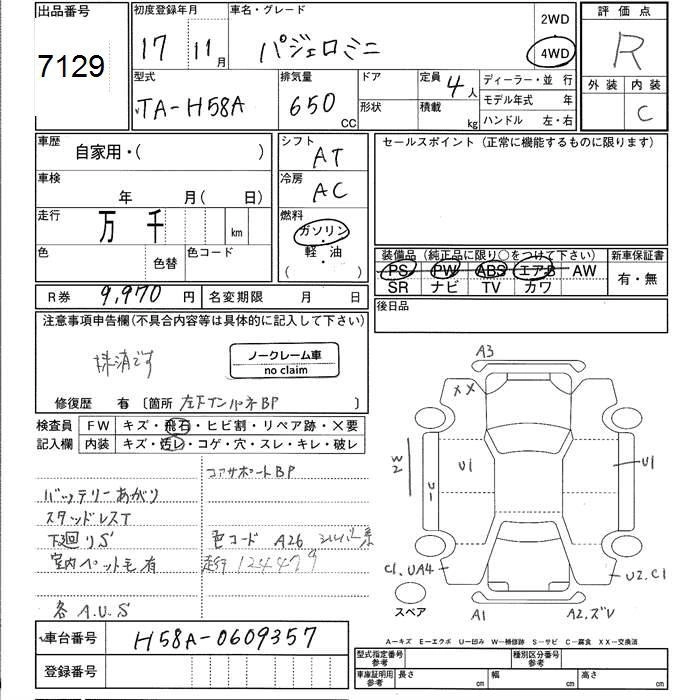 出品番号 7129
初度登録年月 17 11月
車名・グレード パジェロミニ
2WD 4WD
評価点 R
外装 内装 C
型式 TA-H58A
排気量 650 CC
ドア 形状
定員 4人 積載 kg
ディーラー・並 行
モデル年式 年
ハンドル 左・右
車歴 自家用・( )
シフト AT
セールスポイント (正常に機能するものに限ります)
車検 年 月( 日)
冷房 AC
走行 万 千 km
燃料 ガソリン・軽・油 ( )
色 色替 色コード
装備品 (純正品に限り○をつけて下さい)
PS PW ABS エアB AW
SR ナビ TV カワ
新車保証書 有・無
R券 9,970 円 名変期限 月 日
後日品
注意事項申告欄(不具合内容等は具体的に記入して下さい)
抹消です
ノークレーム車
no claim
修復歴 有 〔箇所 左FインパネBP 〕
検査員記入欄
FW キズ・飛石・ヒビ割・リペア跡・×要
内装 キズ・汚レ・コゲ・穴・スレ・キレ・破レ
コアサポートBP
バッテリーあがり
スタッドレスT
下廻りS
色コード A26 シルバー系
室内ペット毛有
走行 124479
各A.U.S
A3
XX
W2
U1
U1
U1
C1.UA4
U2.C1
スペア
A1
A2.ズレ
A―キズ E―エクボ U―凹み W―補修跡 S―サビ C―腐食 XX―交換済
車台番号 H58A-0609357
登録番号
型式指定番号 参考 種別区分番号 参考
車庫証明用 参考 長さ cm 幅 cm 高さ cm